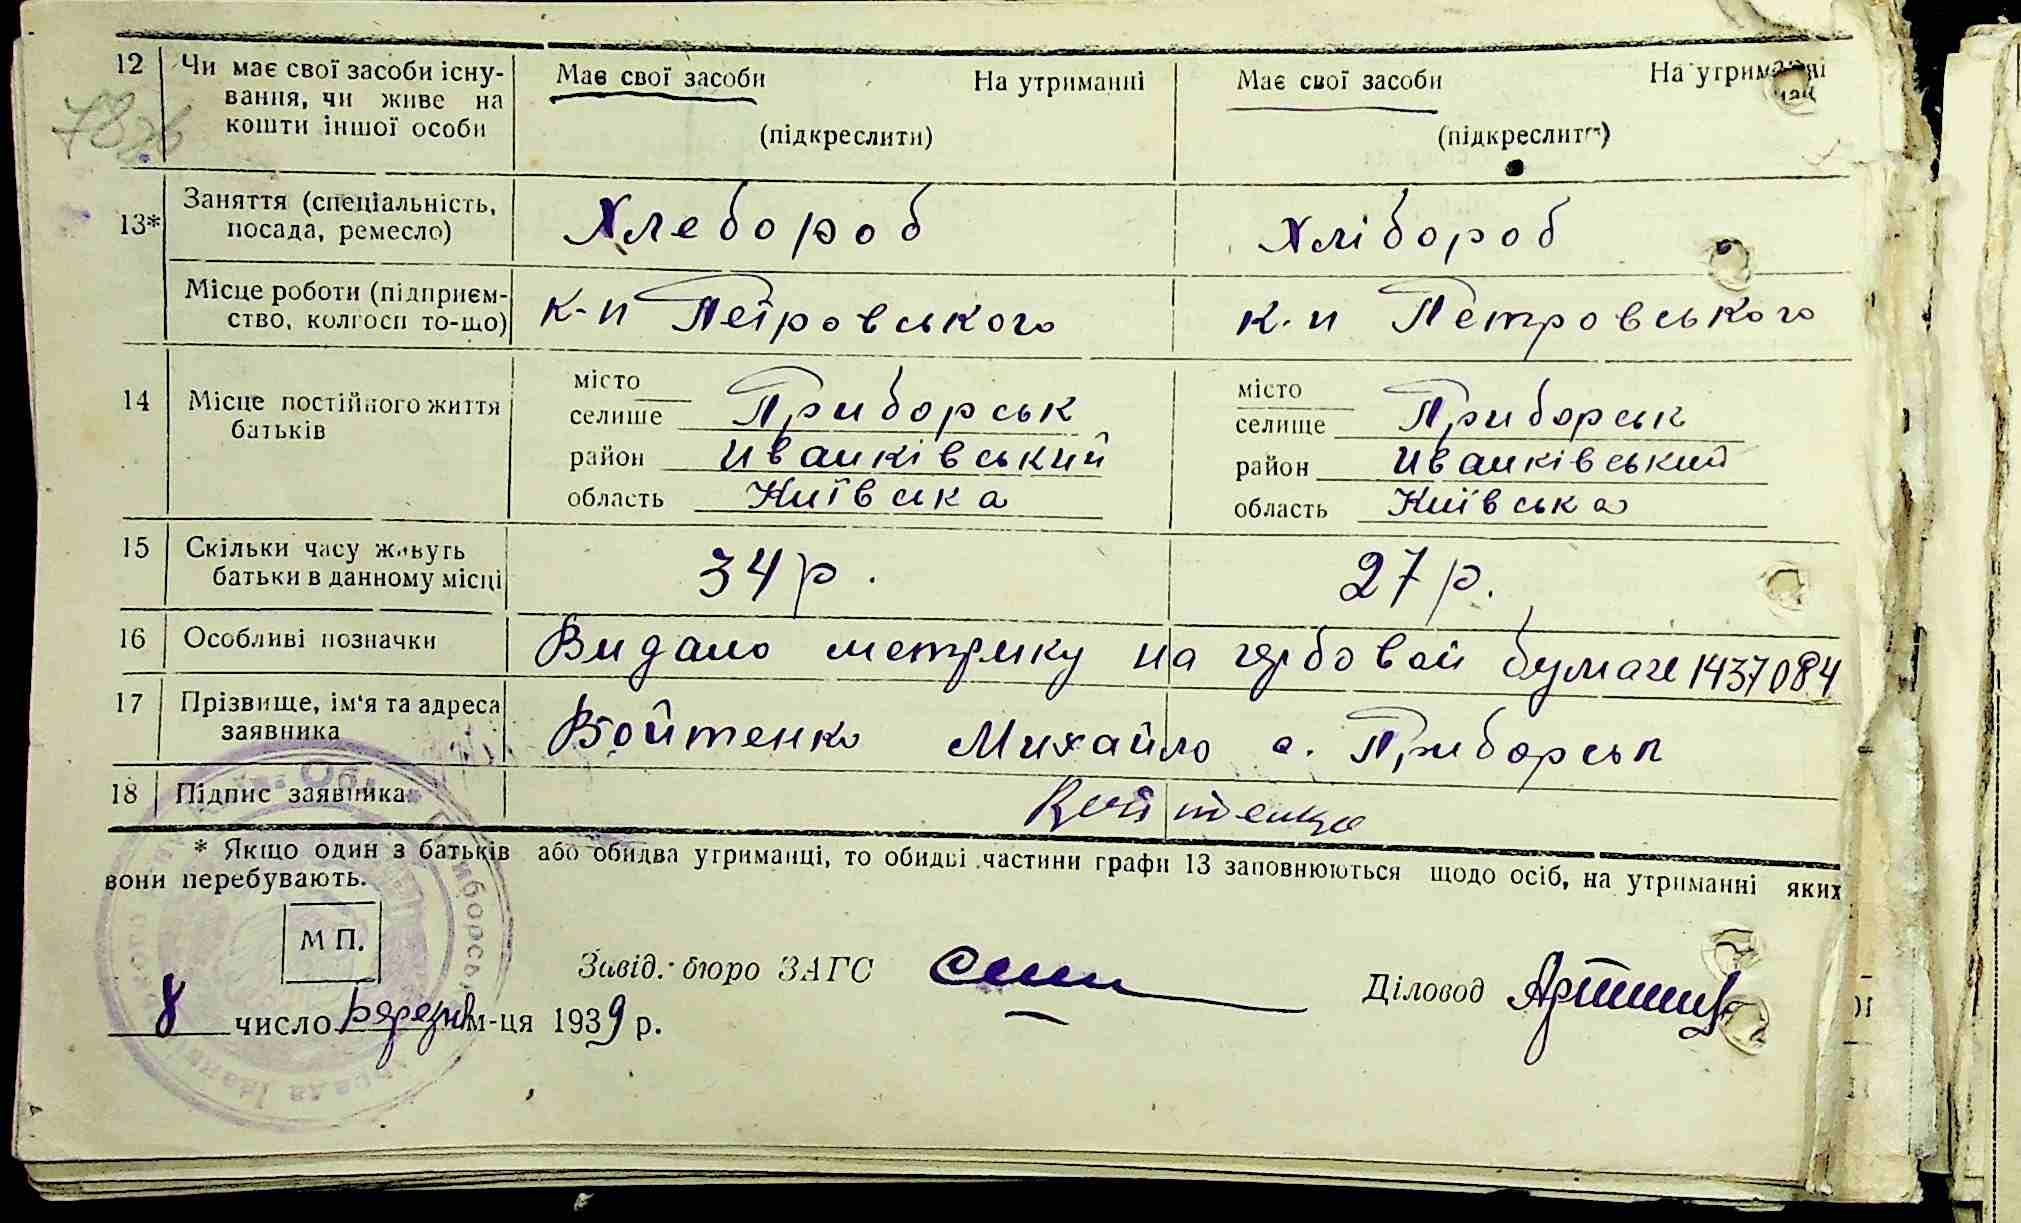 12 Чи має свої засоби існу- Має свої засоби На утриманні Має свої засоби На утриманні
вання, чи живе на
кошти іншої особи (підкреслити) (підкреслити)
13* Заняття (спеціальність, Хлебороб Хлібороб
посада, ремесло)
Місце роботи (підприєм- к-п Петровського к-п Петровського
ство, колгосп то-що)
14 Місце постійного життя місто місто
батьків селище Приборськ селище Приборськ
район Иванківський район Иванківський
область Київська область Київська
15 Скільки часу живуть 34 р. 27 р.
батьки в данному місці
16 Особливі позначки Видано метрику на гербовой бумаге 1437084
17 Прізвище, ім'я та адреса Войтенко Михайло с. Приборськ
заявника
18 Підпис заявника Войтенко
* Якщо один з батьків або обидва утриманці, то обидві частини графи 13 заповнюються щодо осіб, на утриманні яких
вони перебувають.
М П.
Завід. бюро ЗАГС Діловод
8 число березня м-ця 1939 р.